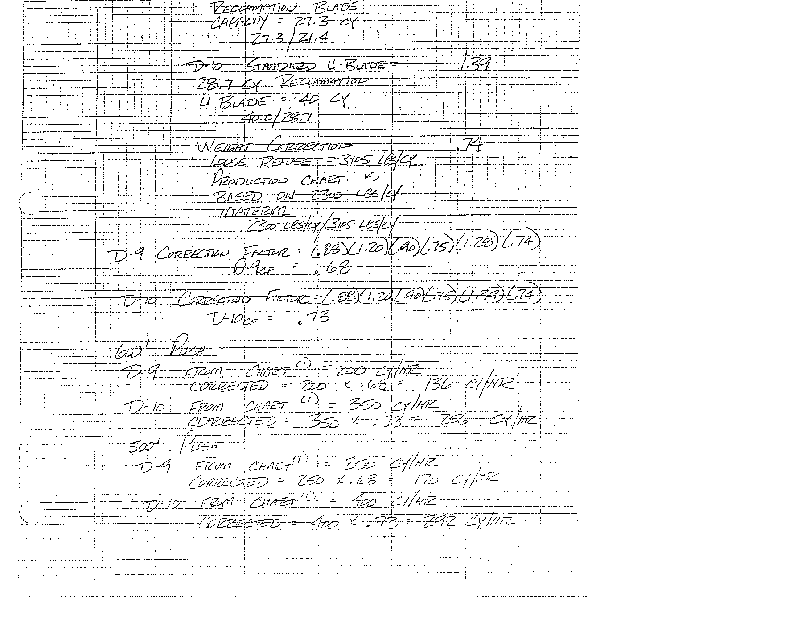 RECLAMATION BLADE
CAPACITY = 27.3 CY
27.3/21.4
D-10 STANDARD U-BLADE = 1.39
28.7 CY RECLAMATION
U BLADE = 40 CY
40.0/28.7
WEIGHT CORRECTION .74
LOOSE REFUSE = 3105 LBS/CY
PRODUCTION CHART
BASED ON 2300 LBS/CY
MATERIAL
2300 LBS/CY/3105 LBS/CY
D-9 CORRECTION FACTOR = (.83)(1.20)(.90)(.75)(1.28)(.74)
D-9CF = .68
D-10 CORRECTION FACTOR = (.83)(1.20)(.90)(.75)(1.39)(.74)
D-10CF = .73
600' PUSH
D-9 FROM CHART (1) = 200 CY/HR
CORRECTED = 200 X .68 = 136 CY/HR
D-10 FROM CHART (1) = 350 CY/HR
CORRECTED = 350 X .73 = 256 CY/HR
500' PUSH
D-9 FROM CHART (1) = 250 CY/HR
CORRECTED = 250 X .68 = 170 CY/HR
D-10 FROM CHART (1) = 400 CY/HR
CORRECTED = 400 X .73 = 292 CY/HR